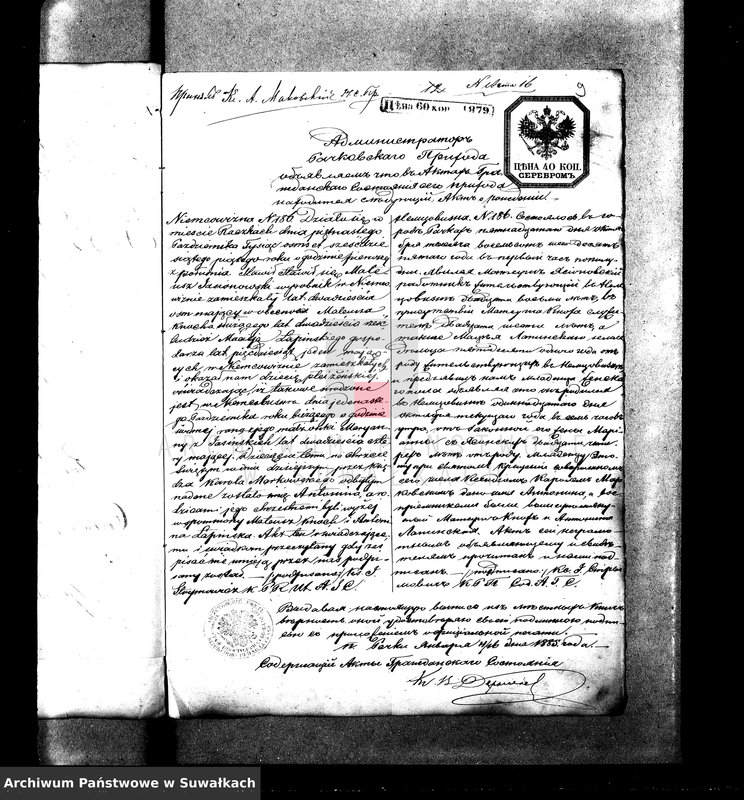 Принялъ Кс. А. Маковскій
N листа 16
9
Цѣна 60 коп. 1879
ЦѢНА 40 КОП.
СЕРЕБРОМЪ
Администраторъ
Бачковскаго Прихода
объявляетъ что въ Актахъ Гра-
жданскаго Состоянія его прихода
находится слѣдующій Актъ о рожденіи:
Niemcowizna N 186. Działo się w
mieście Raczkach dnia piętnastego
Października tysiąc ośmset sześćdzie
siątego piątego roku o godzinie pierwszej
z południa. Stawił się Mate-
usz Jasionowski wyrobnik w Niemco
wiznie zamieszkały lat dwadzieścia
ośm mający w obecności Mateusza
Knocha służącego lat dwadzieścia sześć
tudzież Macieja Łapińskiego gospo-
darza lat pięćdziesiąt jeden mają-
cych w Niemcowiznie zamieszkałych
i okazał nam dziecię płci żeńskiej
oświadczając iż takowe urodzone
jest w Niemcowiznie dnia jedenaste-
go Października roku bieżącego o godzinie
siódmej rano z jego małżonki Maryan-
ny z Jasińskich lat dwadzieścia czte-
ry mającej. Dziecięciu temu na chrzcie
świętym w dniu dzisiejszym przez księ-
dza Karola Morkowskiego odbytym
nadane zostało imię Antonina, a ro-
dzicami jego chrzestnemi byli wyżej
wspomniony Mateusz Knoch i Antoni-
na Łapińska. Akt ten oświadczające-
mu i świadkom przeczytany gdy za-
pisać nie umieją przez nas podpi-
sany został. — podpisano: ks. J.
K. P. R. Ut. A. S. C.
Немцовизна. N. 186. Состоялось въ го-
родѣ Рачкахъ пятнадцатаго дня октя-
бря тысяча восемьсотъ шестьдесятъ
пятаго года въ первый часъ пополу-
дни. Явился Матеушъ Ясіоновскій
работникъ жительствующій въ Нем-
цовизнѣ двадцати восьми лѣтъ, въ
присутствіи Матеуша Кноха служи-
теля двадцати шести лѣтъ, а
также Мацѣя Лапинскаго
пятидесяти одного года отъ
роду жительствующихъ въ Немцовизнѣ
и предъявилъ намъ младенца женска-
го пола объявляя что онъ родился
въ Немцовизнѣ одиннадцатаго дня
октября текущаго года въ семь часовъ
утра, отъ законной его жены Марі-
анны съ Ясинскихъ двадцати четы-
рехъ лѣтъ отъ роду. Младенцу это-
му при святомъ крещеніи совершонномъ
сего числа Ксендзомъ Каролемъ Мор-
ковскимъ дано имя Антонина, а вос-
пріемниками были вышеупомяну-
тый Матеушъ Кнохъ и Антонина
Лапинская. Актъ сей неграмо-
тнымъ объявляющему и свидѣ-
телямъ прочитанъ и нами под-
писанъ. — подписано: Кс. І.
К. П. Сод. А. Г. С.
Выдавая настоящую выпись изъ мѣстныхъ книгъ
вѣрность оной удостовѣряю своею подписью
съ приложеніемъ оффиціальной печати.
Рачки Января 4/16 дня 1885 года. —
Содержащій Акты Гражданскаго Состоянія
Кс. В.
Archiwum Państwowe w Suwałkach